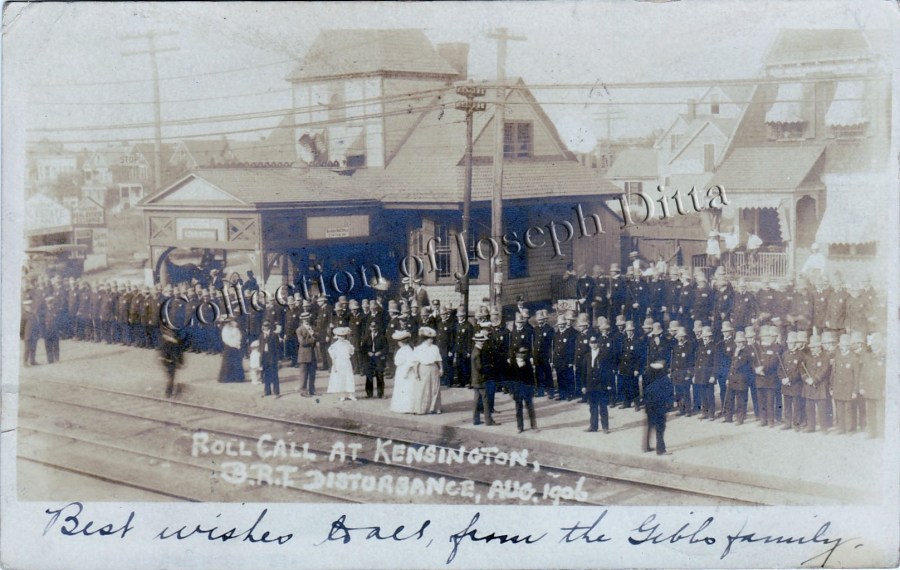 Collection of Joseph Ditta
ROLL CALL AT KENSINGTON,
B.R.T. DISTURBANCE, AUG. 1906
Best wishes to all, from the Gibbs family.